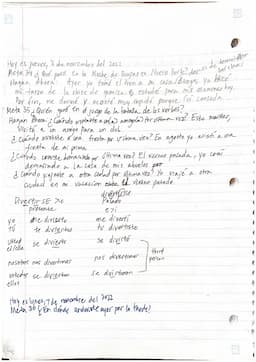 Hoy es jueves, 3 de noviembre del 2022
Meta 34: ¿Qué pasó en la Noche de Brujas en Nuevo York?
Hagan Ahora: Ayer yo tomé el tren a mi casa. Luego, yo hice
mi tarea de la clase de química y estudié para mis exámenes hoy.
Por fin, me dormí y acosté muy rápido porque fui cansada.
Meta 35: ¿Quién ganó en el juego de la batalla de los verbos?
Hagan Ahora: ¿Cuándo visitaste a un(a) amigo(a) por última vez? Este martes,
visité a mi amigo para un dul
¿Cuándo asististe a una fiesta por última vez? En agosto yo asistí a una
fiesta de mi prima
¿Cuándo comiste demasiado por última vez? El verano pasado, yo comí
demasiado a la casa de mis abuelos
¿Cuándo viajaste a otra ciudad por última vez? Yo viajé a otra
ciudad en mi vacación el verano pasado
Divertirse
presente
pasado
yo me divierto me divertí
tú te diviertes tú divertiste
usted se divierte se divirtió
él/ella
nosotros nos divertimos nos divertimos
third person
ustedes se divierten se divirtieron
ellos
Hoy es lunes, 7 de noviembre del 2022
Meta 36: ¿En dónde anduviste ayer por la tarde?